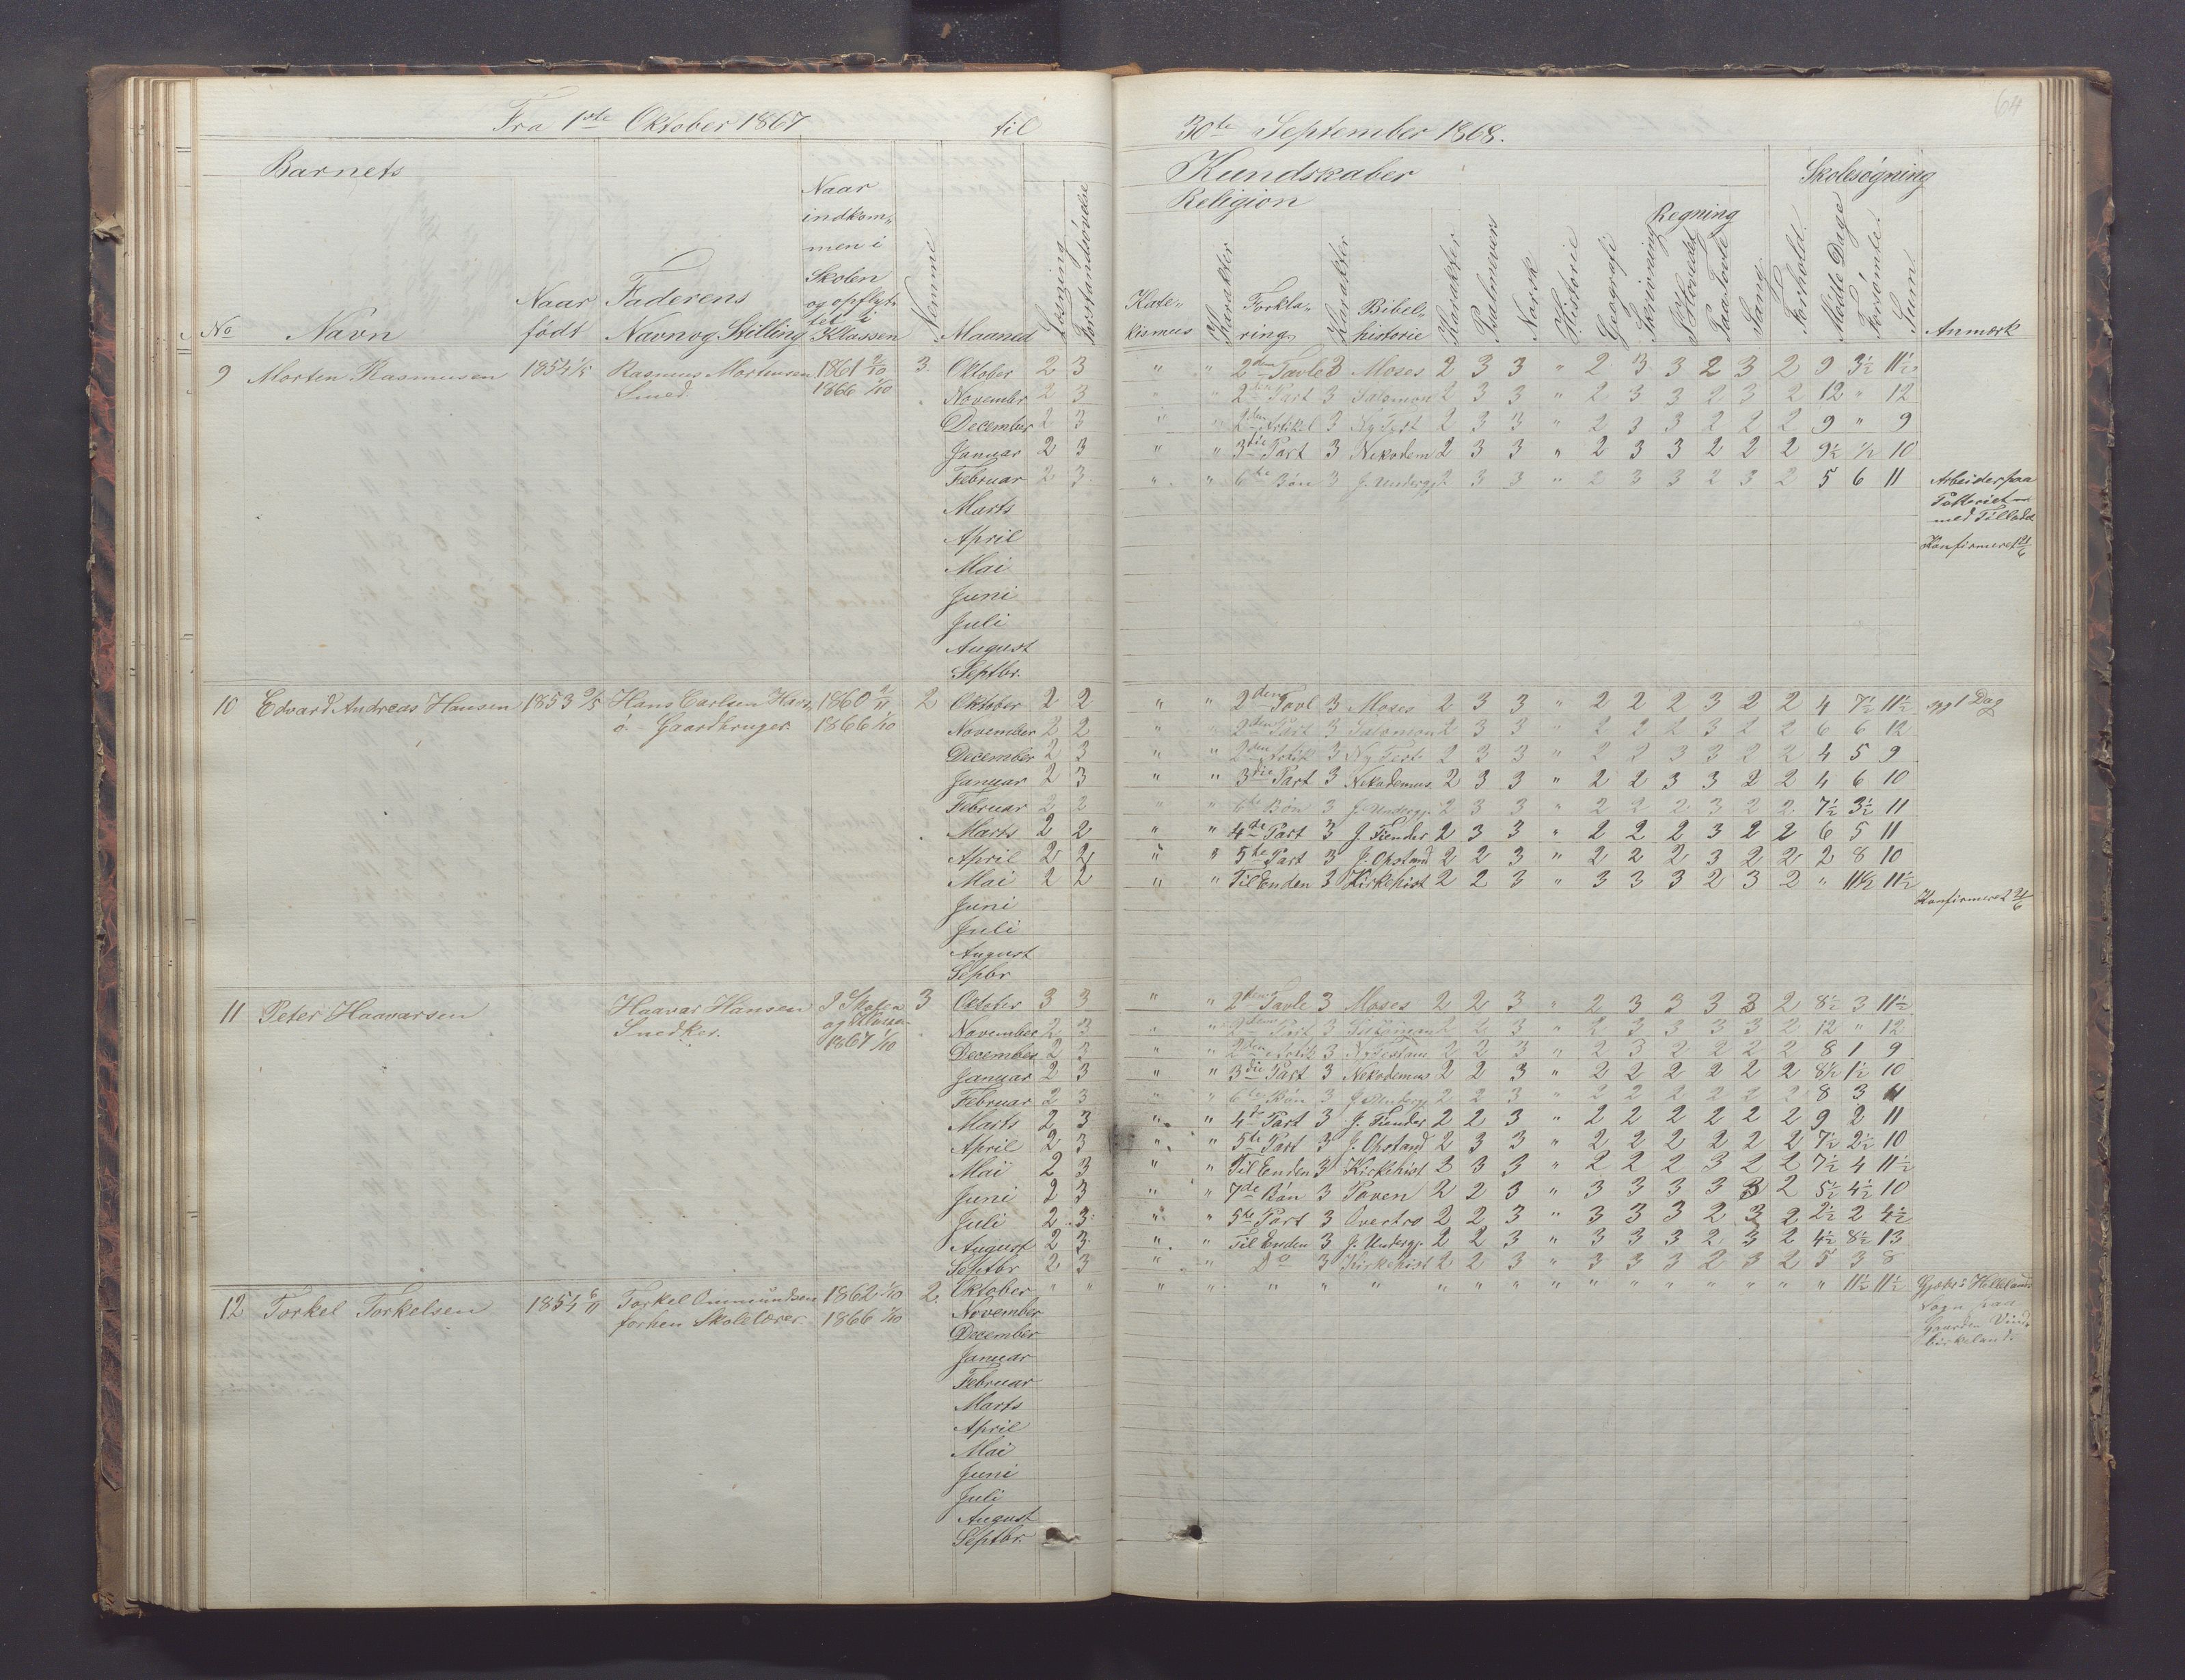 64
Fra 1ste Oktober 1867 til 30te September 1868.
Barnets Kundskaber Skolesøgning
Religion
Regning
No Navn Naar født Faderens Navn og Stilling Naar indkom„ men i Skolen og opflyt„ tet i Klassen Nemme Maaned Læsning Forstandsøvelse Kate„ kismus Karakter Forkla„ ring Karakter Bibel„ historie Karakter Psalmevers Norsk Historie Geografi Skrivning I Hovedet Paa Tavle Sang Forhold Mødte Dage Forsømte Sum Anmærk
9 Morten Rasmusen 1854 1/5 Rasmus Mortensen 1861 2/10 3. Oktober 2 3 " " 2den Tavle 3 Moses 2 3 3 " 2 3 3 2 3 2 9 3½ 11½
Smed. 1866 1/10 November 2 3 " " 2den Part 3 Salomon 2 3 3 " 2 3 3 2 3 2 12 " 12
December 2 3 " " 2den Artikel 3 Ny Test 2 3 3 " 2 3 3 2 2 2 9 " 9
Januar 2 3 " " 3die Part 3 Nikodem 2 3 3 " 2 3 3 2 2 2 9½ ½ 10
Februar 2 3 " " 6te Bøn 3 J. Undergj. 2 3 3 " 2 3 3 2 3 2 5 6 11 Arbeider paa
Marts Potteriet
med Tillade
April Konfirmeret 21/6
Mai
Juni
Juli
August
Septbr.
10 Edvard Andreas Hansen 1853 9/5 Hans Carlsen 1860 2/11 2 Oktober 2 2 " " 2den Tavl 3 Moses 2 3 3 " 2 2 2 3 2 2 4 7½ 11½ syg 1 Dag
Gaardbruger. 1866 1/10 November 2 2 " " 2den Part 3 Salomon 2 3 3 " 2 2 2 3 2 2 6 6 12
December 2 3 " " 2den Artik 3 Ny Test. 2 3 3 " 2 2 3 3 2 2 4 5 9
Januar 2 3 " " 3die Part 3 Nikodemus 2 3 3 " 2 2 3 3 2 2 4 6 10
Februar 2 2 " " 6te Bøn 3 J. Undergj. 2 3 3 " 2 2 2 3 2 2 7½ 3½ 11
Marts 2 2 " " 4de Part 3 J. Fiender 2 3 3 " 2 2 2 3 2 2 6 5 11
April 2 2 " " 5te Part 3 J. Opstand 2 2 3 " 2 2 2 3 2 2 2 8 10
Mai 2 2 " " Til Enden 3 Kirkehist 2 2 3 " 3 3 3 2 3 2 " 11½ 11½
Juni Konfirmeret 21/6
Juli
August
Sepbr
11 Peter Haavarsen Haavar Hansen I Skolen 3 Octobr 3 3 " " 2den Tavle 3 Moses 2 2 3 " 2 3 3 3 3 2 8½ 3 11½
Snedker. og Klassen November 2 3 " " 2den Part 3 Salomon 2 2 3 " 2 3 3 3 3 2 12 " 12
1867 1/10 December 2 3 " " 2den Artik 3 Ny Testam 2 2 3 " 2 3 2 2 2 2 8 1 9
Januar 2 3 " " 3die Part 3 Nekodemus 2 2 3 " 2 2 2 2 2 2 8½ 1½ 10
Februar 2 3 " " 6te Bøn 3 J. Undergj. 2 2 3 " 2 2 2 2 2 2 8 3 11
Marts 2 3 " " 4de Part 3 J. Fiender 2 2 3 " 2 2 2 2 2 2 9 2 11
April 2 3 " " 5te Part 3 J. Opstand 2 3 3 " 2 2 2 2 2 2 7½ 2½ 10
Mai 2 3 " " Til Enden 3 Kirkehist 2 3 3 " 2 2 2 3 2 2 7½ 4 11½
Juni 2 3 " " 7de Bøn 3 Paven 2 2 3 " 3 3 3 3 3 2 5½ 4½ 10
Juli 2 3 " " 5te Part 3 Overtro 2 2 3 " 3 3 3 2 3 2 2½ 2 4½
August 2 3 " " Til Enden 3 J. Undergj. 2 2 3 " 3 3 3 2 3 2 4½ 8½ 13
Septbr 2 3 " " Do 3 Kirkehist 2 2 3 " 3 3 3 2 3 2 5 3 8
12 Torkel Torkelsen 1854 6/11 Torkel Ommundsen 1862 1/10 2. Oktober " " " " " " " " " " " " " " " " " " " 11½ 11½ Gjæter i Hellelands
forhen Skolelærer 1866 1/10 November Sogn paa
December Gaarden
Januar
Februar
Marts
April
Mai
Juni
Juli
August
Septbr.